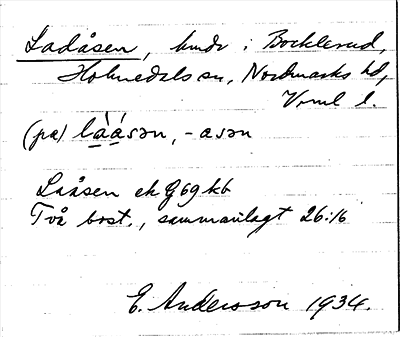 Ladåsen, hmdr i Bocklerud,
Holmedals sn, Nordmarks hd,
Vrml l.
(pa) làásən, -asən
Laåsen ek G69k6
Två bost., sammanlagt 26:16
E. Andersson 1934.